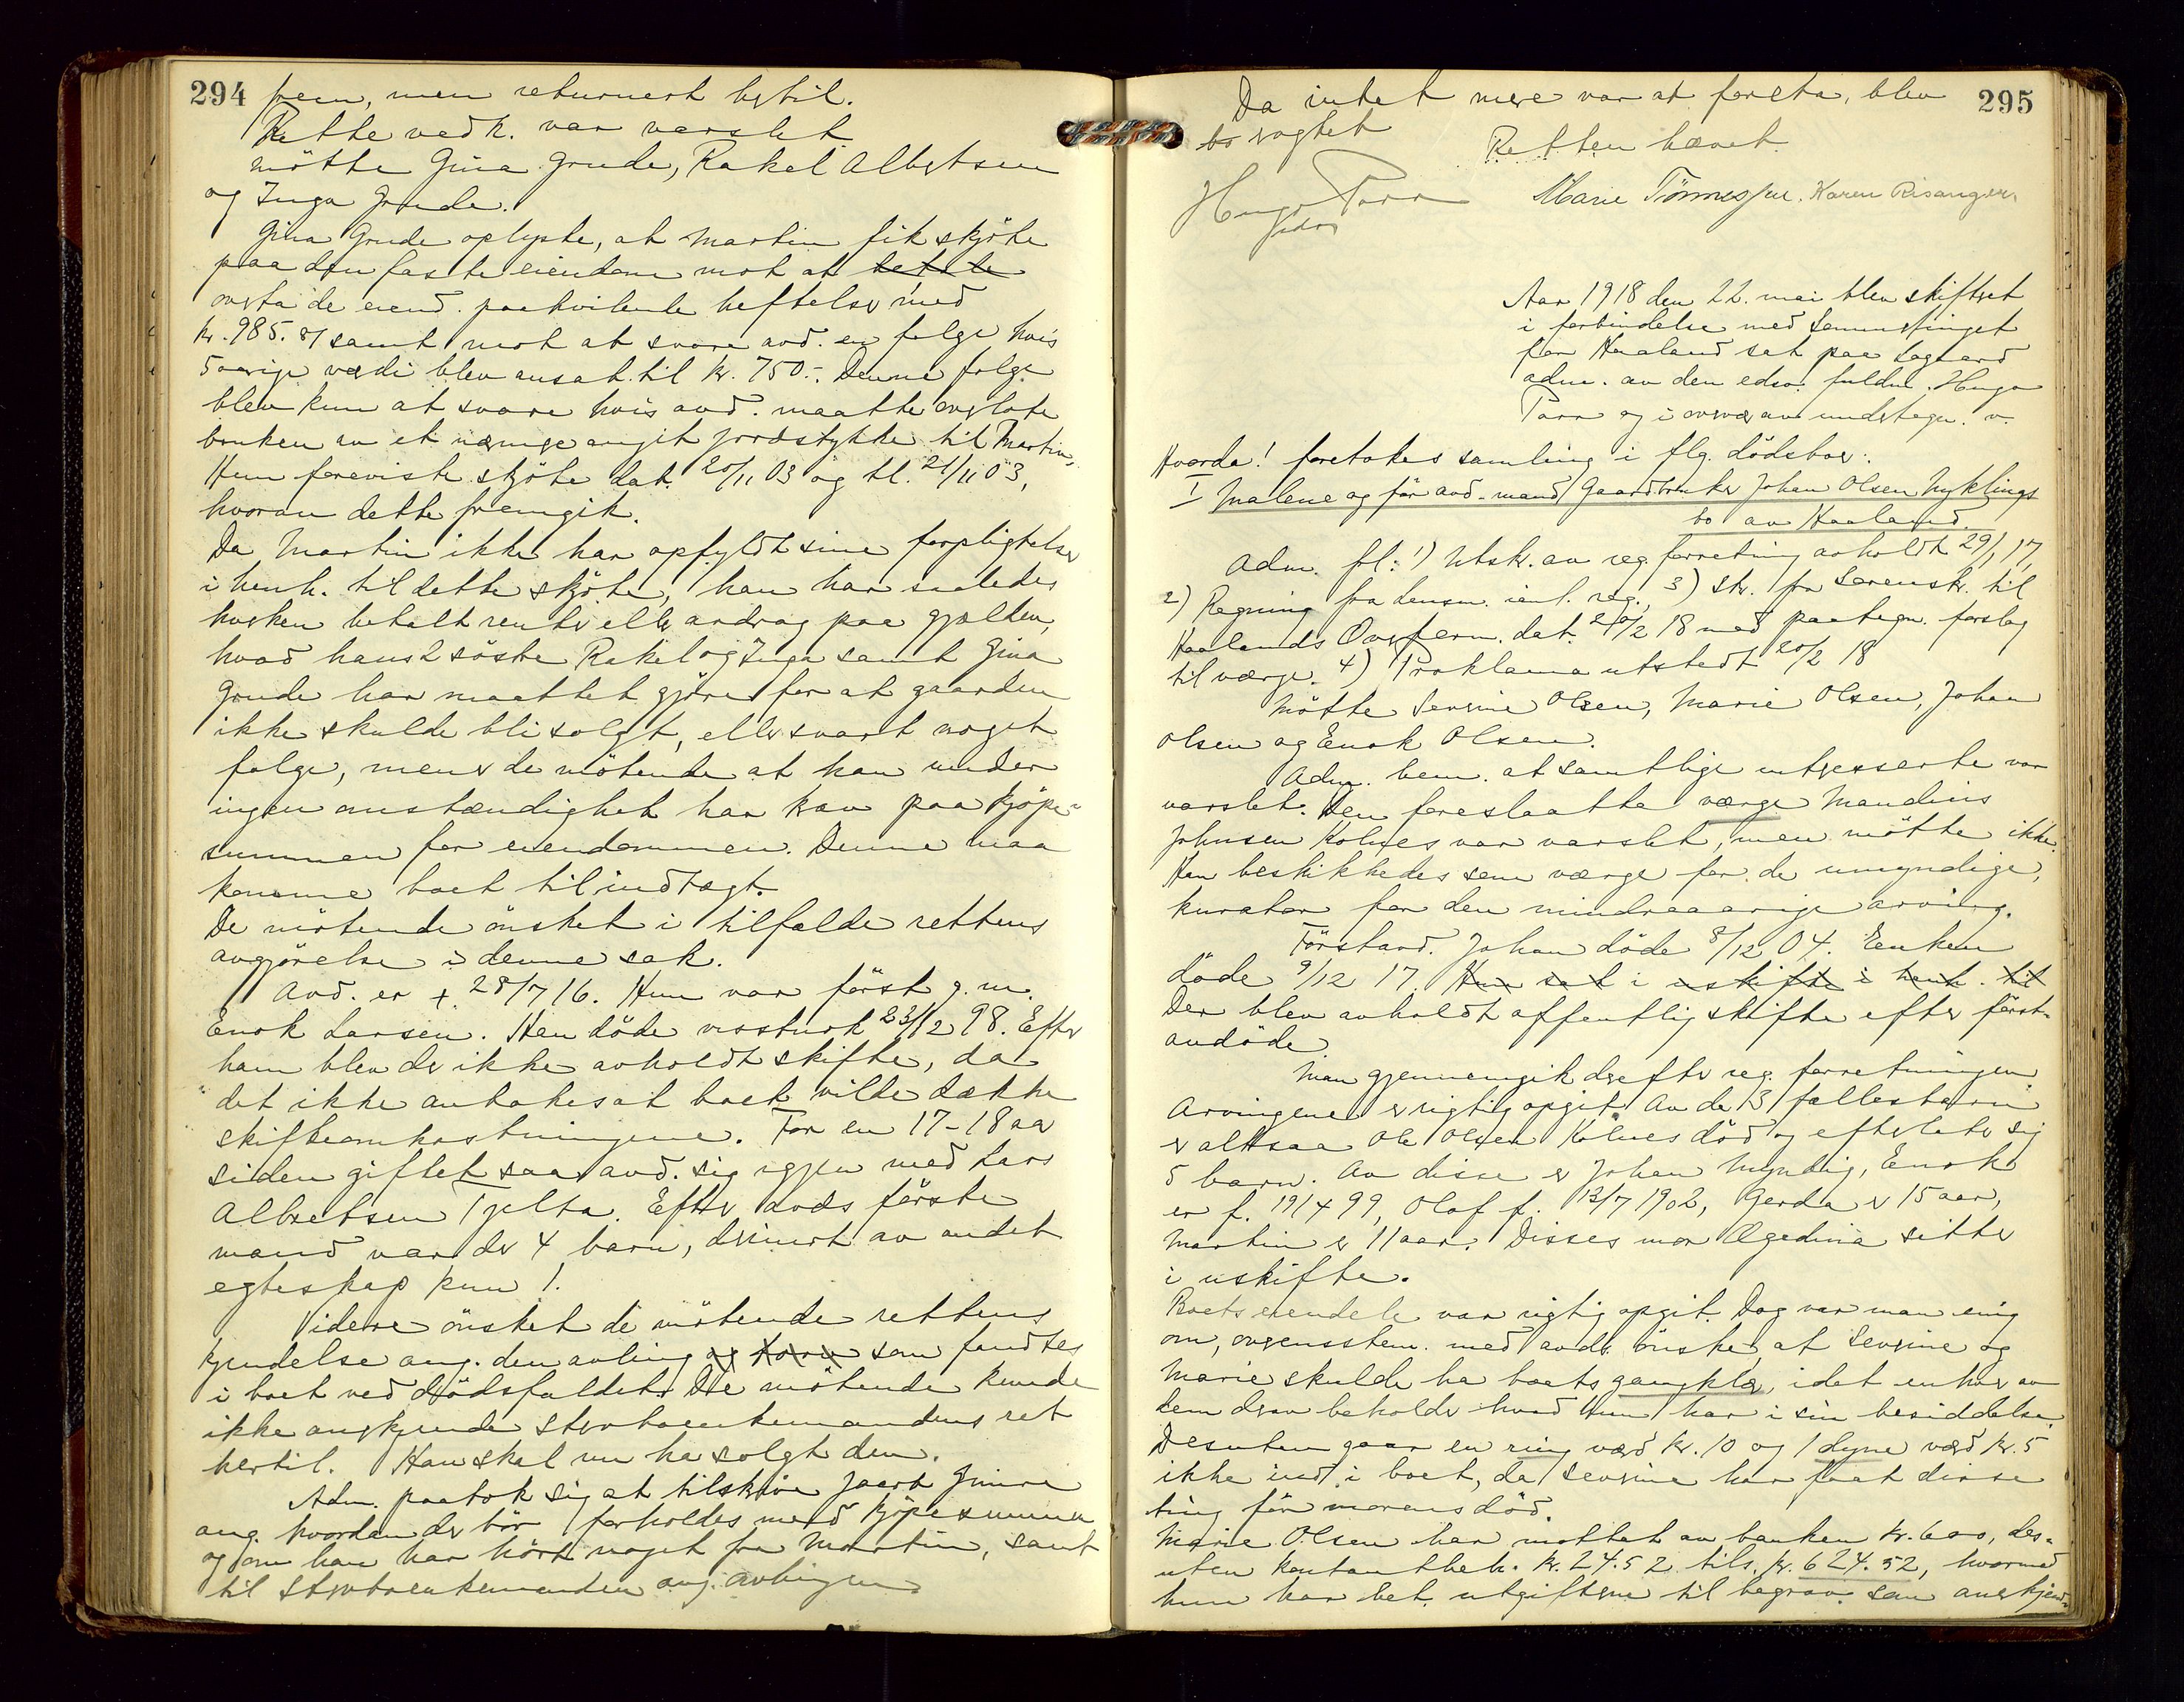 294 frem, men returnert hertil.
Rette vedk. var varslet.
Mötte Gina Grude, Rakel Albertsen
og Inga Grude.
Gina Grude oplyste, at Martin fik skjöte
paa den faste eiendom mot at betale
overta de eiend. paahvilende heftelser med
kr. 985.81 samt mot at svare avd. en folge hvis
5 aarige værdi blev ansat til kr. 750.-. Denne folge
blev kun at svare hvis avd. maatte overlate
bruken av et nærmere angit jordstykke til Martin.
Hun foreviste skjöte dat. 20/11 03 og tl. 21/11 03,
hvorav dette fremgik.
Da Martin ikke har opfyldt sine forpligtelser
i henh. til dette skjöte, han har saaledes
hverken betalt renter eller avdrag paa gjælden,
hvad hans 2 söstre Rakel og Inga samt Gina
Grude har maattet gjöre for at gaarden
ikke skulde bli solgt, eller svart noget
folge, mener de mötende at han under
ingen omstændighet har krav paa kjöpe-
summen for eiendommen. Denne maa
komme boet til indtægt.
De mötende önsket i tilfælde rettens
avgjörelse i denne sak.
Avd. er + 28/7 16. Hun var först g. m.
Enok Larsen. Han döde visstnok 23/12 98. Efter
ham blev der ikke avholdt skifte, da
det ikke antokes at boet vilde dække
skifteomkostningene. For en 17-18 aar
siden giftet saa avd. sig igjen med Lars
Albretsen Tjelta. Efter avds förste
mand var der 4 barn, derimot av andet
egteskap kun 1.
Videre önsket de mötende rettens
kjendelse ang. den avling og korn som fandtes
i boet ved dödsfaldet. De mötende kunde
ikke anerkjende stervboenkemandens ret
hertil. Han skal nu ha solgt den.
Adm. paatok sig at tilskrive
ang. hvordan der bör forholdes med kjöpesummen
og om han har hört noget fra Martin, samt
til stervboenkemanden ang. avlingen
Da intet mere var at foreta, blev 295
bo sagtet
Retten hævet.
Hugo Parr
edsv
Marie Tönnessen. Karen Risanger.
Aar 1918 den 22. mai blev skifteret
i forbindelse med Sommertinget
for Haaland sat paa Lagaard
adm. av den edsv. fuldm. Hugo
Parr og i overvær av undertegn. v.
Hvorda! foretokes samling i flg. dödsboer:
I Malene og för avd. mand Gaardbruker Johan Olsen Myklings
bo av Haaland.
Adm. fl: 1) Utskr. av reg. forretning avholdt 29/1 17,
2) Regning fra densm. ienl. reg., 3) Skr. fra Sorenskr. til
Haalands Overform. dat. 20/2 18 med paategn. forslag
til værge. 4) Proklama utstedt 20/2 18
Mötte Severine Olsen, Marie Olsen, Johan
Olsen og Enok Olsen.
Adm. bem. at samtlige interesserte var
varslet. Den foreslaatte værge Maudius
Johnsen Kolnes var varslet, men mötte ikke.
Han beskikkedes som værge for de umyndige,
kurator for den mindreaarige arving.
Förstavd. Johan döde 8/12 04. Enken
döde 9/12 17. Hun sat i uskifte i henh. til
Der blev avholdt offentlig skifte efter först-
avdöde.
Man gjennemgik derefter reg. forretningen
Arvingene er rigtig opgit. Av de 3 fællesbarn
er altsaa Ole Olsen Kolnes död og efterlater sig
5 barn. Av disse er Johan myndig, Enok
er f. 19/4 99, Olaf f. 13/7 1902, Gerda er 15 aar,
Martin er 11 aar. Disses mor Ægedina sitter
i uskifte.
Boets eiendele var rigtig opgit. Dog var man enig
om, overensstem. med avds önske, at Severine og
Marie skulde ha boets gangklær, idet enhver av
dem derav beholder hvad Hun har i sin besiddelse.
Desuten gaar en ring værd kr. 10 og 1 dyne værd kr. 5
ikke ind i boet, da Severine har faat disse
ting för morens död.
Marie Olsen har mottat av banken kr. 600, des-
uten kontantbeh. kr. 24.52 tils. kr. 624.52, hvormed
hun har bet. utgiftene til begrav. som anerkjend-